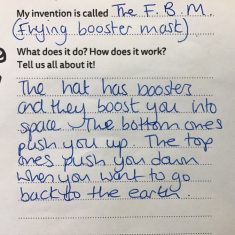 My invention is called The F. B. M.
(Flying booster mast)
What does it do? How does it work?
Tell us all about it!
The hat has booster
and they boost you into
space. The bottom ones
push you up. The top
ones push you down
when you want to go
back to the earth.